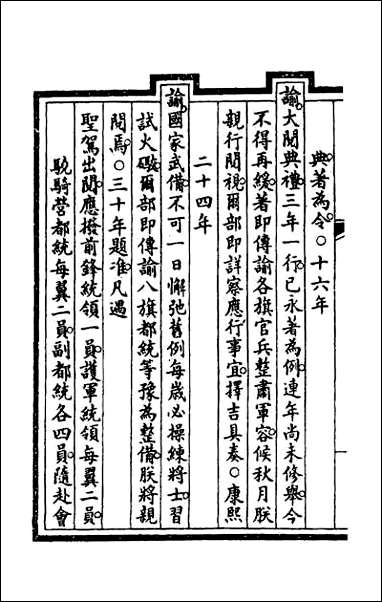 典著為令○十六年
諭大閱典禮三年一行已永著為例連年尚未修舉今
不得再緩著即傳諭各旗官兵整肅軍容候秋月朕
親行閱視爾部即詳察應行事宜擇吉具奏○康熙
二十四年
諭國家武備不可一日懈弛舊例每歲必操練將士習
試火礮爾部即傳諭八旗都統等豫為整備朕將親
閱焉○三十年題准凡遇
聖駕出閱應撥前鋒統領一員護軍統領每翼二員
驍騎營都統每翼二員副都統各四員隨赴會